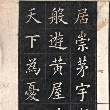 居崇茅宇
般遊黃屋
天下為憂